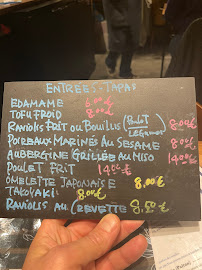 ENTRÉES-TAPAS
EDAMAME 6.00€
TOFU FROID 8.00€
RAVIOLIS FRIT OU BOUILLIS (Poulet Légumes) 8.00€
POIREAUX MARINÉS AU SESAME 8.00€
AUBERGINE GRILLÉE AU MISO 14.00€
POULET FRIT 14.00€
OMELETTE JAPONAISE 8.00€
TAKOYAKI 8.00€
RAVIOLIS AU CREVETTE 8.50€